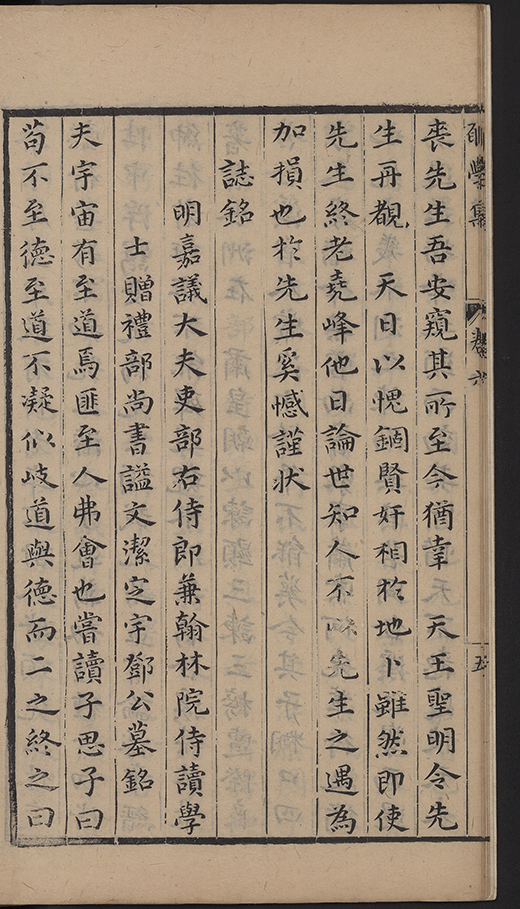 學集 卷六 五
喪先生吾安窺其所至今猶幸 天王聖明令先
生再覩 天日以愧錮賢奸相於地下雖然即使
先生終老堯峰他日論世知人不以先生之遇為
加損也於先生奚憾謹狀
誌銘
明嘉議大夫吏部右侍郎兼翰林院侍讀學
士贈禮部尚書謚文潔定宇鄧公墓銘
夫宇宙有至道焉匪至人弗會也嘗讀子思子曰
苟不至德至道不凝似岐道與德而二之終之曰